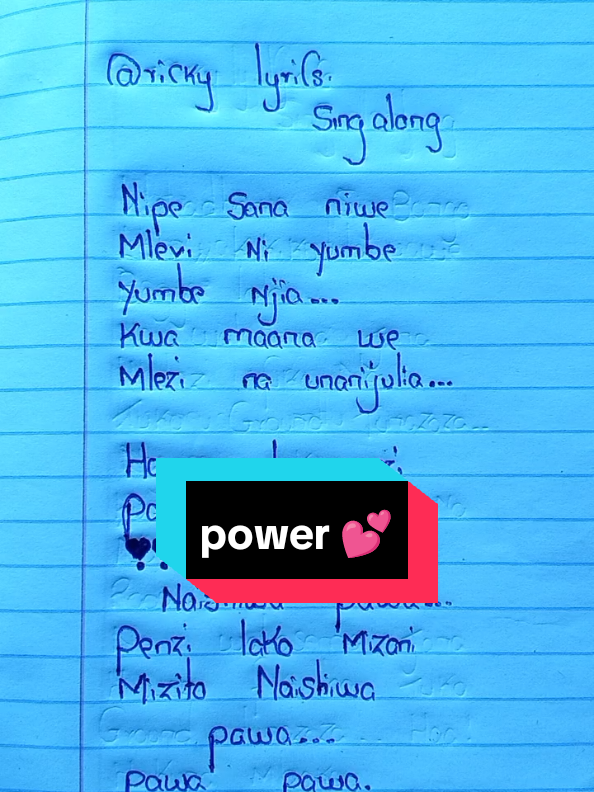 @ricky lyrics.
Sing along
Nipe Sana niwe
Mlevi Ni yumbe
yumbe Njia...
Kwa maana we
Mlezi na unanijulia...
power 💕
Naishiwa pawa...
Penzi lako Mizani
Mizito Naishiwa
pawa...
pawa pawa.